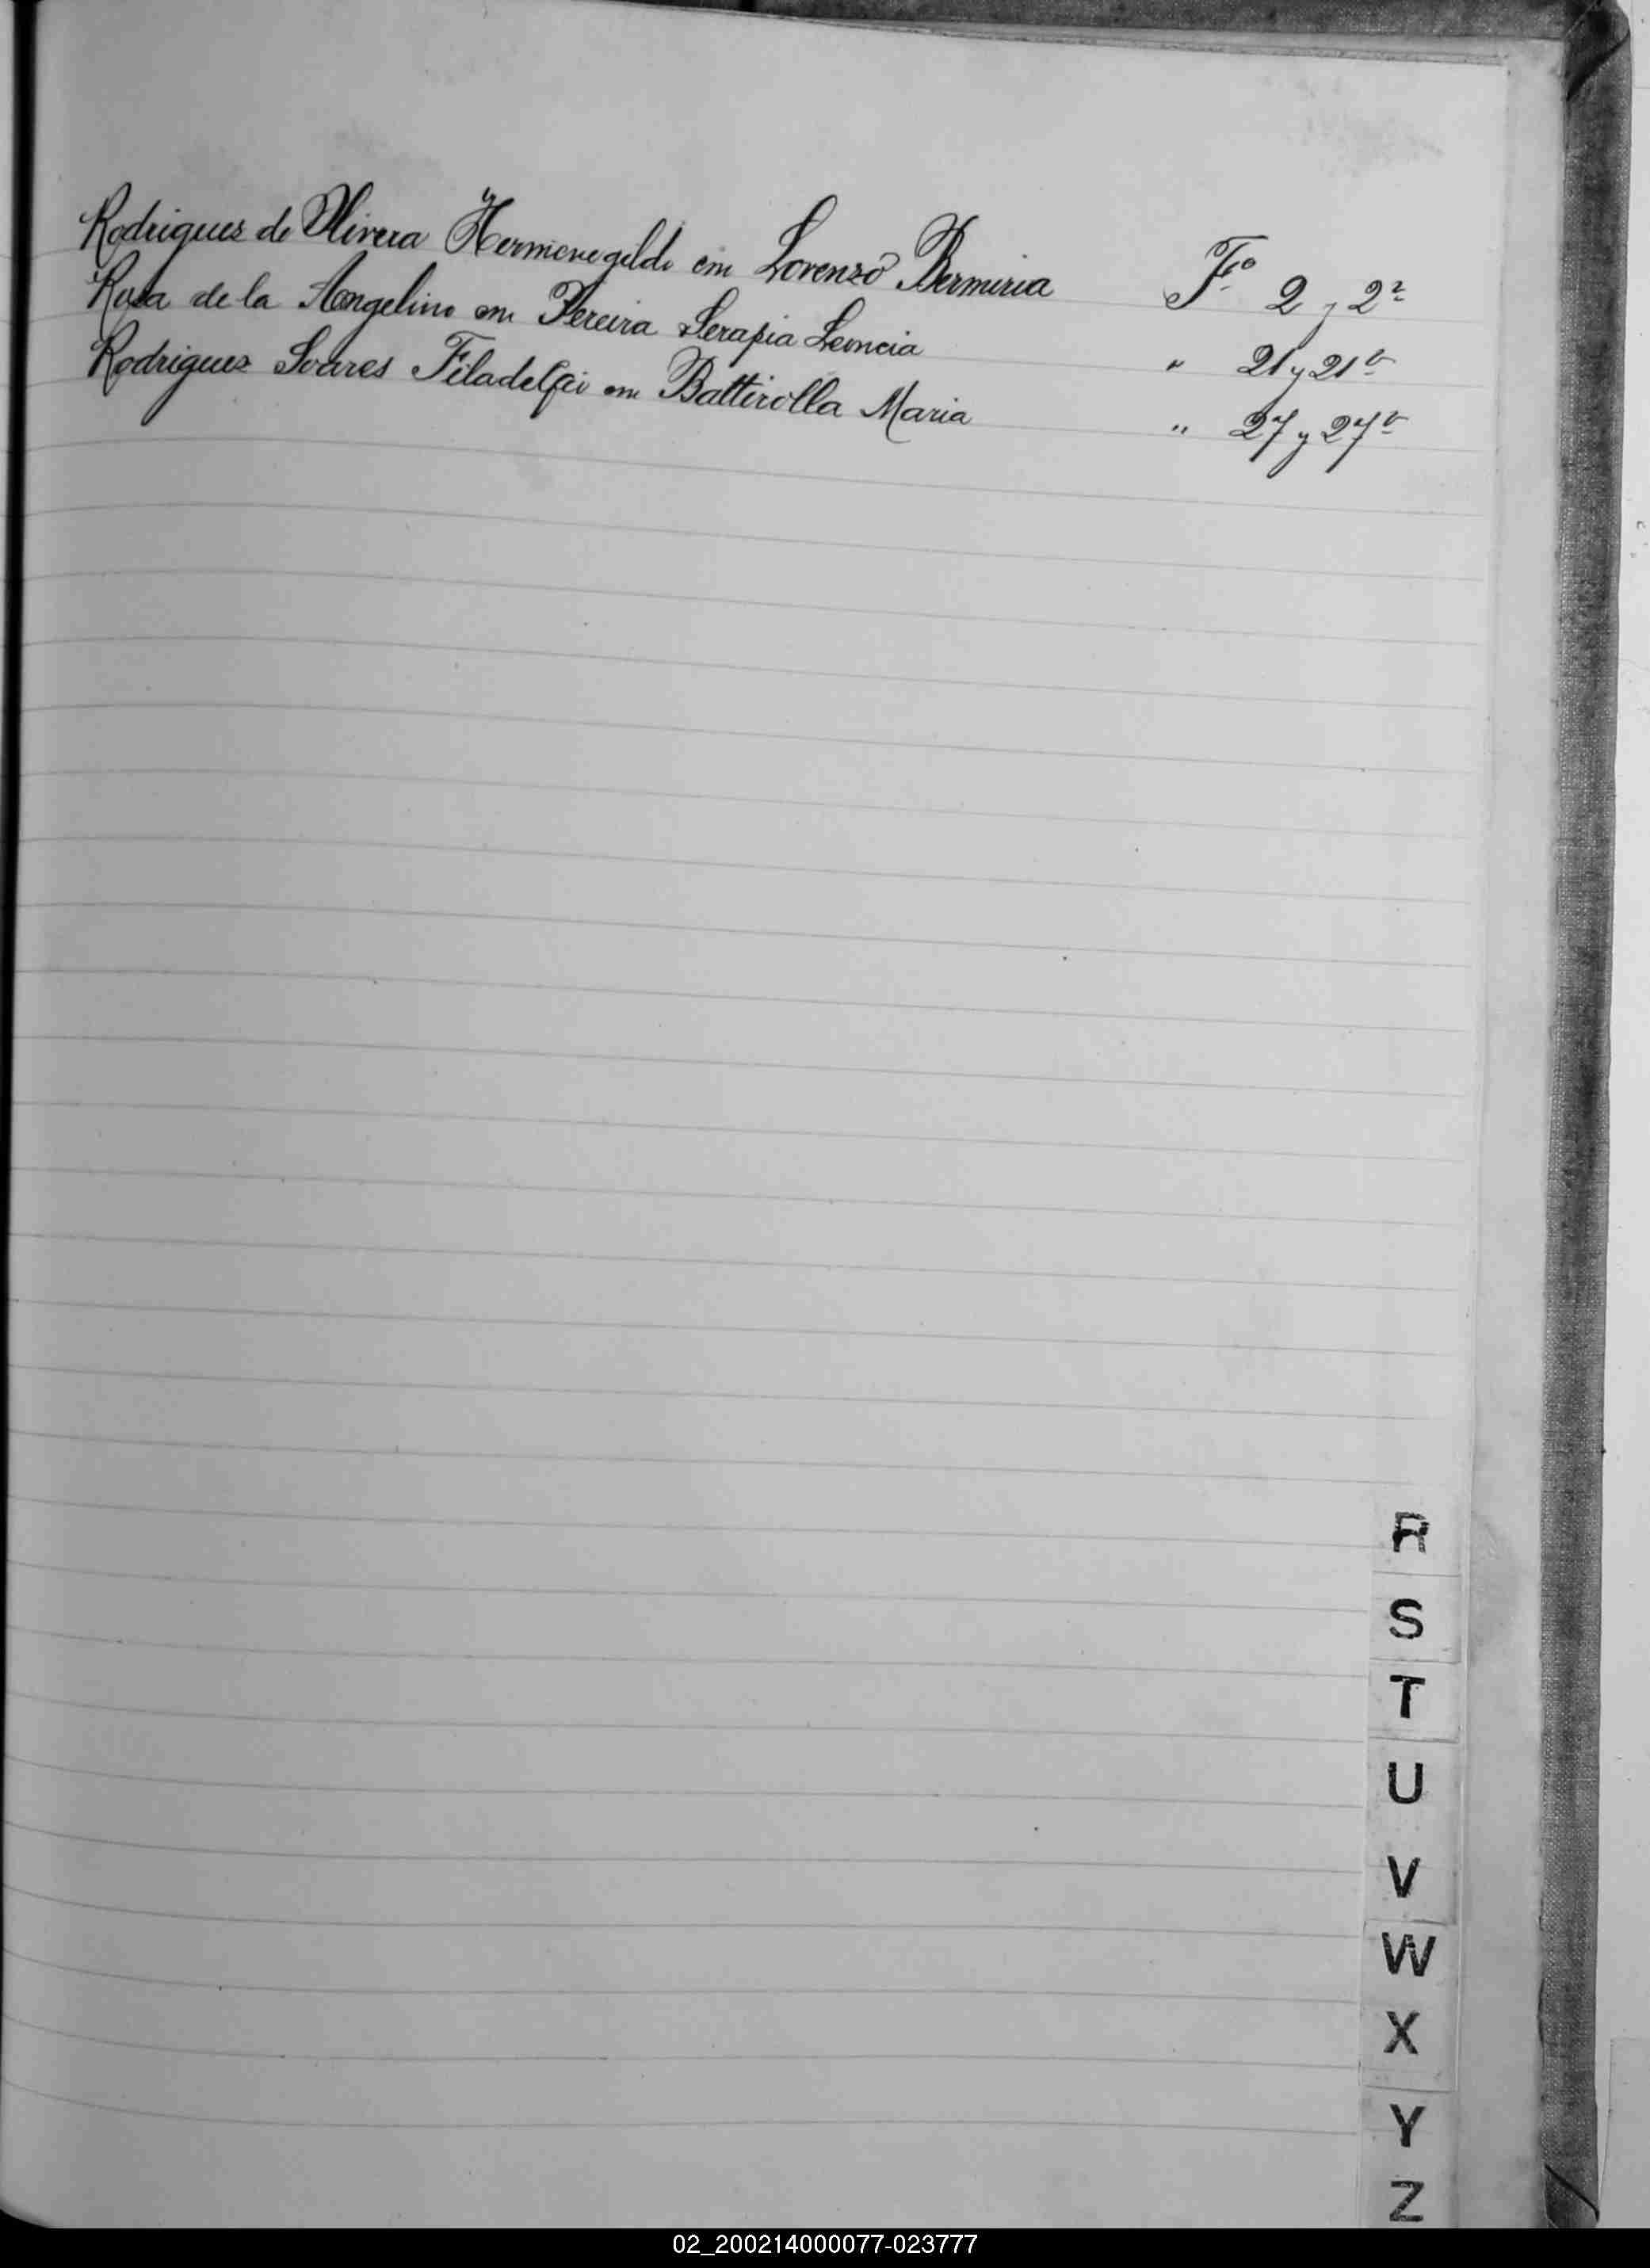 Rodrigues de Olivera Hermenegildo con Lorenzo Bermiria Fº 2 y 2v
Rosa de la Angelino con Pereira Serapia Leoncia " 21 y 21v
Rodriguez Soares Filadelfio con Battirolla Maria " 27 y 27v
R
S
T
U
V
W
X
Y
Z
02_200214000077-023777